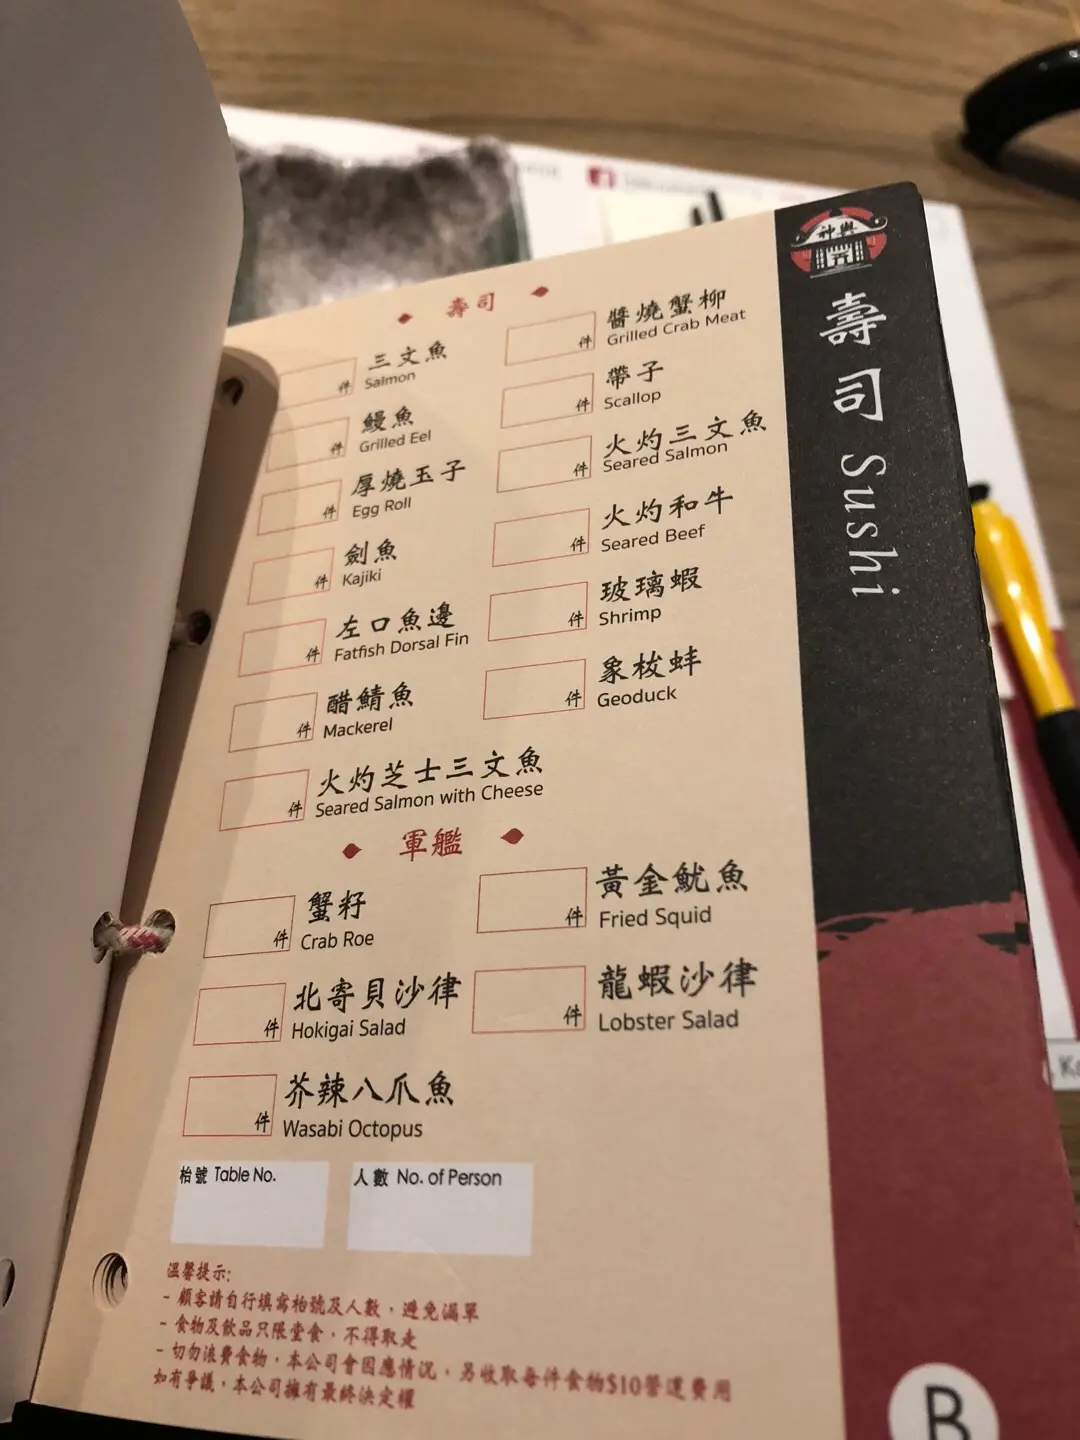 神輿
壽司 Sushi
壽司
件 三文魚
Salmon
件 鰻魚
Grilled Eel
件 厚燒玉子
Egg Roll
件 劍魚
Kajiki
件 左口魚邊
Fatfish Dorsal Fin
件 醋鯖魚
Mackerel
件 火灼芝士三文魚
Seared Salmon with Cheese
件 醬燒蟹柳
Grilled Crab Meat
件 帶子
Scallop
件 火灼三文魚
Seared Salmon
件 火灼和牛
Seared Beef
件 玻璃蝦
Shrimp
件 象拔蚌
Geoduck
軍艦
件 蟹籽
Crab Roe
件 北寄貝沙律
Hokigai Salad
件 芥辣八爪魚
Wasabi Octopus
件 黃金魷魚
Fried Squid
件 龍蝦沙律
Lobster Salad
枱號 Table No.
人數 No. of Person
溫馨提示:
- 顧客請自行填寫枱號及人數，避免漏單
- 食物及飲品只限堂食，不得取走
- 切勿浪費食物，本公司會因應情況，另收取每件食物$10營運費用
如有爭議，本公司擁有最終決定權
B